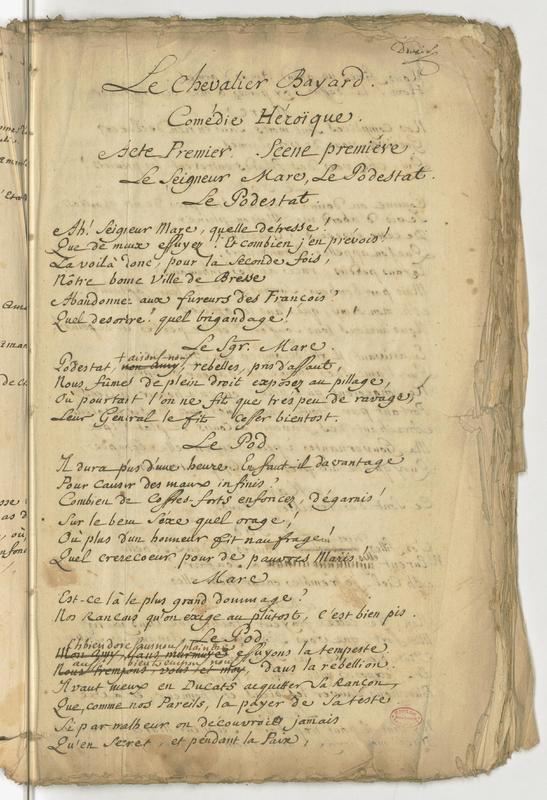 Le Chevalier Bayard.
Comédie Héroïque.
Acte Premier. Scene premiére
Le Seigneur Mare, Le Podestat.
Le Podestat.
Ah! Seigneur Mare, quelle détresse!
Que de maux essuyez! Et combien j'en prévois!
La voilà donc, pour la seconde fois,
Nôtre bonne Ville de Bresse
Abandonnée aux fureurs des François!
Quel desordre! quel brigandage!
Le Sgr. Mare.
Podestat, rebelles, pris d'assaut,
Nous fûmes de plein droit exposez au pillage,
Où pourtant l'on ne fit que très peu de ravage,
Leur Général le fit Cesser bientost.
Le Pod.
Il dura plus d'une heure. En faut-il davantage
Pour causer des maux infinis?
Combien de Coffres-forts enfoncez, dégarnis!
Sur le beau Sexe quel orage!
Où plus d'un honneur fit naufrage!
Quel crevecoeur pour de pauvres Maris!
Mare
Est-ce là le plus grand dommage?
Nos Rancons qu'on exige au plûtost, c'est bien pis.
Le Pod.
Eh bien donc sans nous plaindre
mon Amy, sans murmure essuyons la tempeste
aussi bien
Nous trempons, vous et moy, dans la rébellion.
Il vaut mieux en Ducats acquitter sa Rançon,
Que, comme nos Pareils, la payer de sa teste
Si par malheur on découvroit jamais
Qu'en Secret, et pendant la Paix,